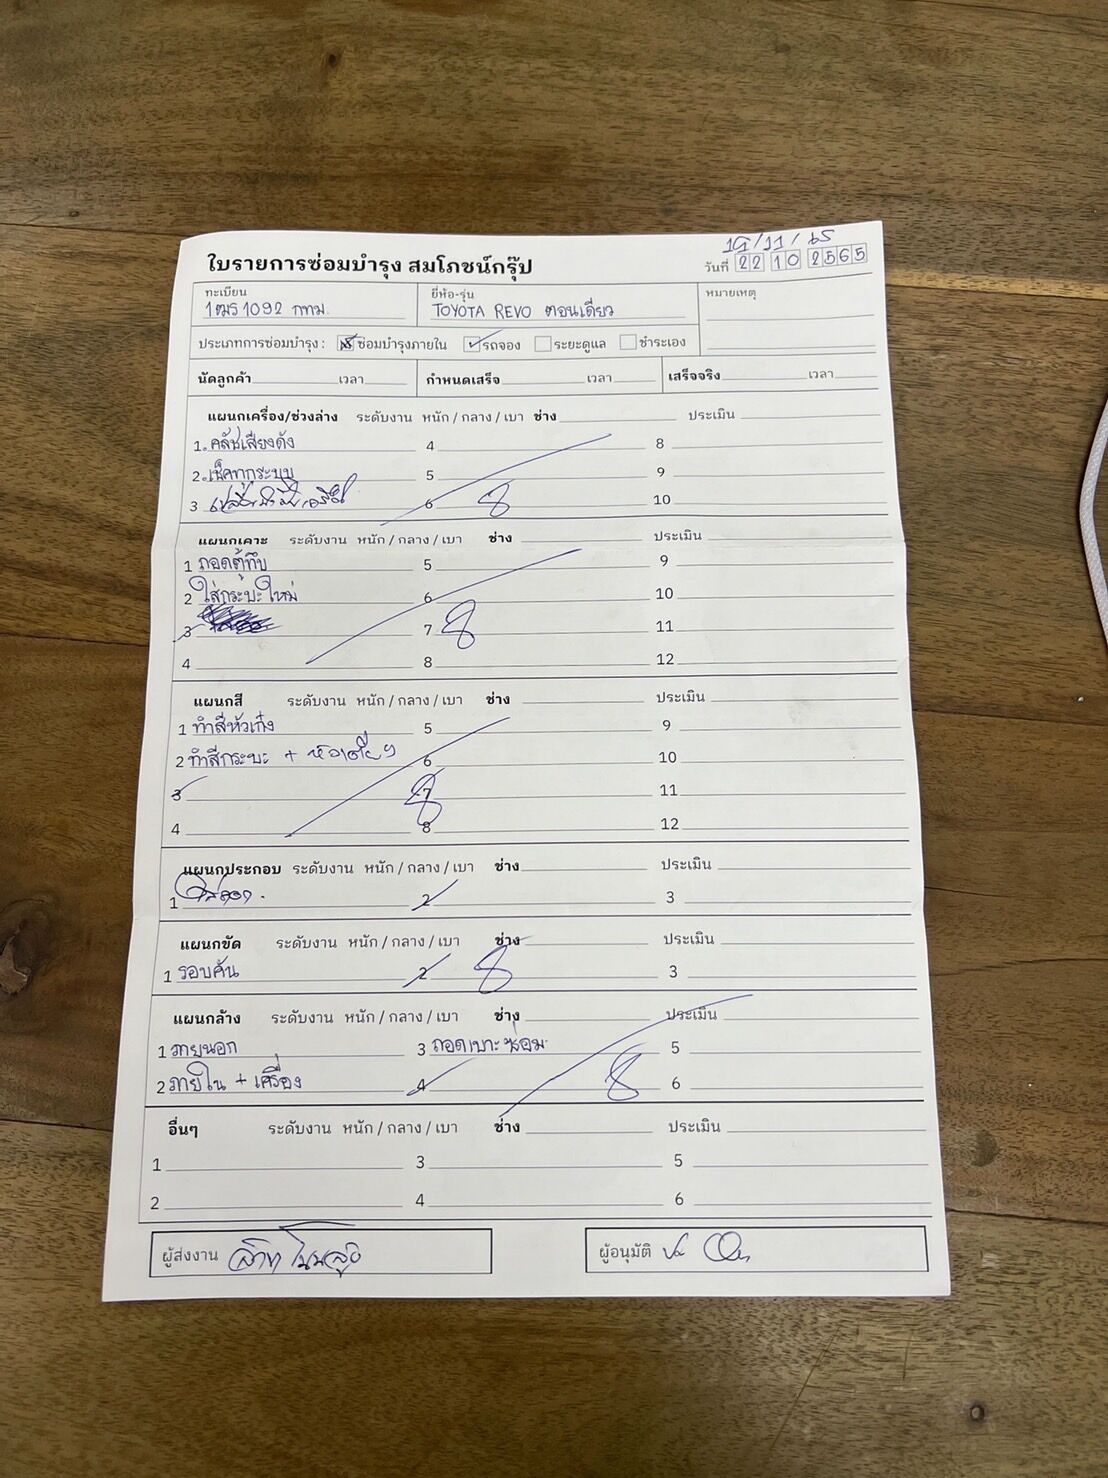 19/11/65
ใบรายการซ่อมบำรุง สมโภชน์กรุ๊ป
วันที่ 22 10 2565
ทะเบียน ยี่ห้อ-รุ่น หมายเหตุ
1ฒร 1092 กทม. TOYOTA REVO ตอนเดียว
ประเภทการซ่อมบำรุง : ซ่อมบำรุงภายใน รถจอง ระยะดูแล ชำระเอง
นัดลูกค้า เวลา กำหนดเสร็จ เวลา เสร็จจริง เวลา
แผนกเครื่อง/ช่วงล่าง ระดับงาน หนัก / กลาง / เบา ช่าง ประเมิน
1. คลัชเสียงดัง 4 8
2. เช็คทุกระบบ 5 9
3 6 10
แผนกเคาะ ระดับงาน หนัก / กลาง / เบา ช่าง ประเมิน
1 ถอดตู้ทึบ 5 9
2 ใส่กระบะใหม่ 6 10
3 7 11
4 8 12
แผนกสี ระดับงาน หนัก / กลาง / เบา ช่าง ประเมิน
1 ทำสีหัวเก๋ง 5 9
2 ทำสีกระบะ + 6 10
3 7 11
4 8 12
แผนกประกอบ ระดับงาน หนัก / กลาง / เบา ช่าง ประเมิน
1 2 3
แผนกขัด ระดับงาน หนัก / กลาง / เบา ช่าง ประเมิน
1 รอบคัน 2 3
แผนกล้าง ระดับงาน หนัก / กลาง / เบา ช่าง ประเมิน
1 ภายนอก 3 ถอดเบาะซ่อม 5
2 ภายใน + เครื่อง 4 6
อื่นๆ ระดับงาน หนัก / กลาง / เบา ช่าง ประเมิน
1 3 5
2 4 6
ผู้ส่งงาน ผู้อนุมัติ